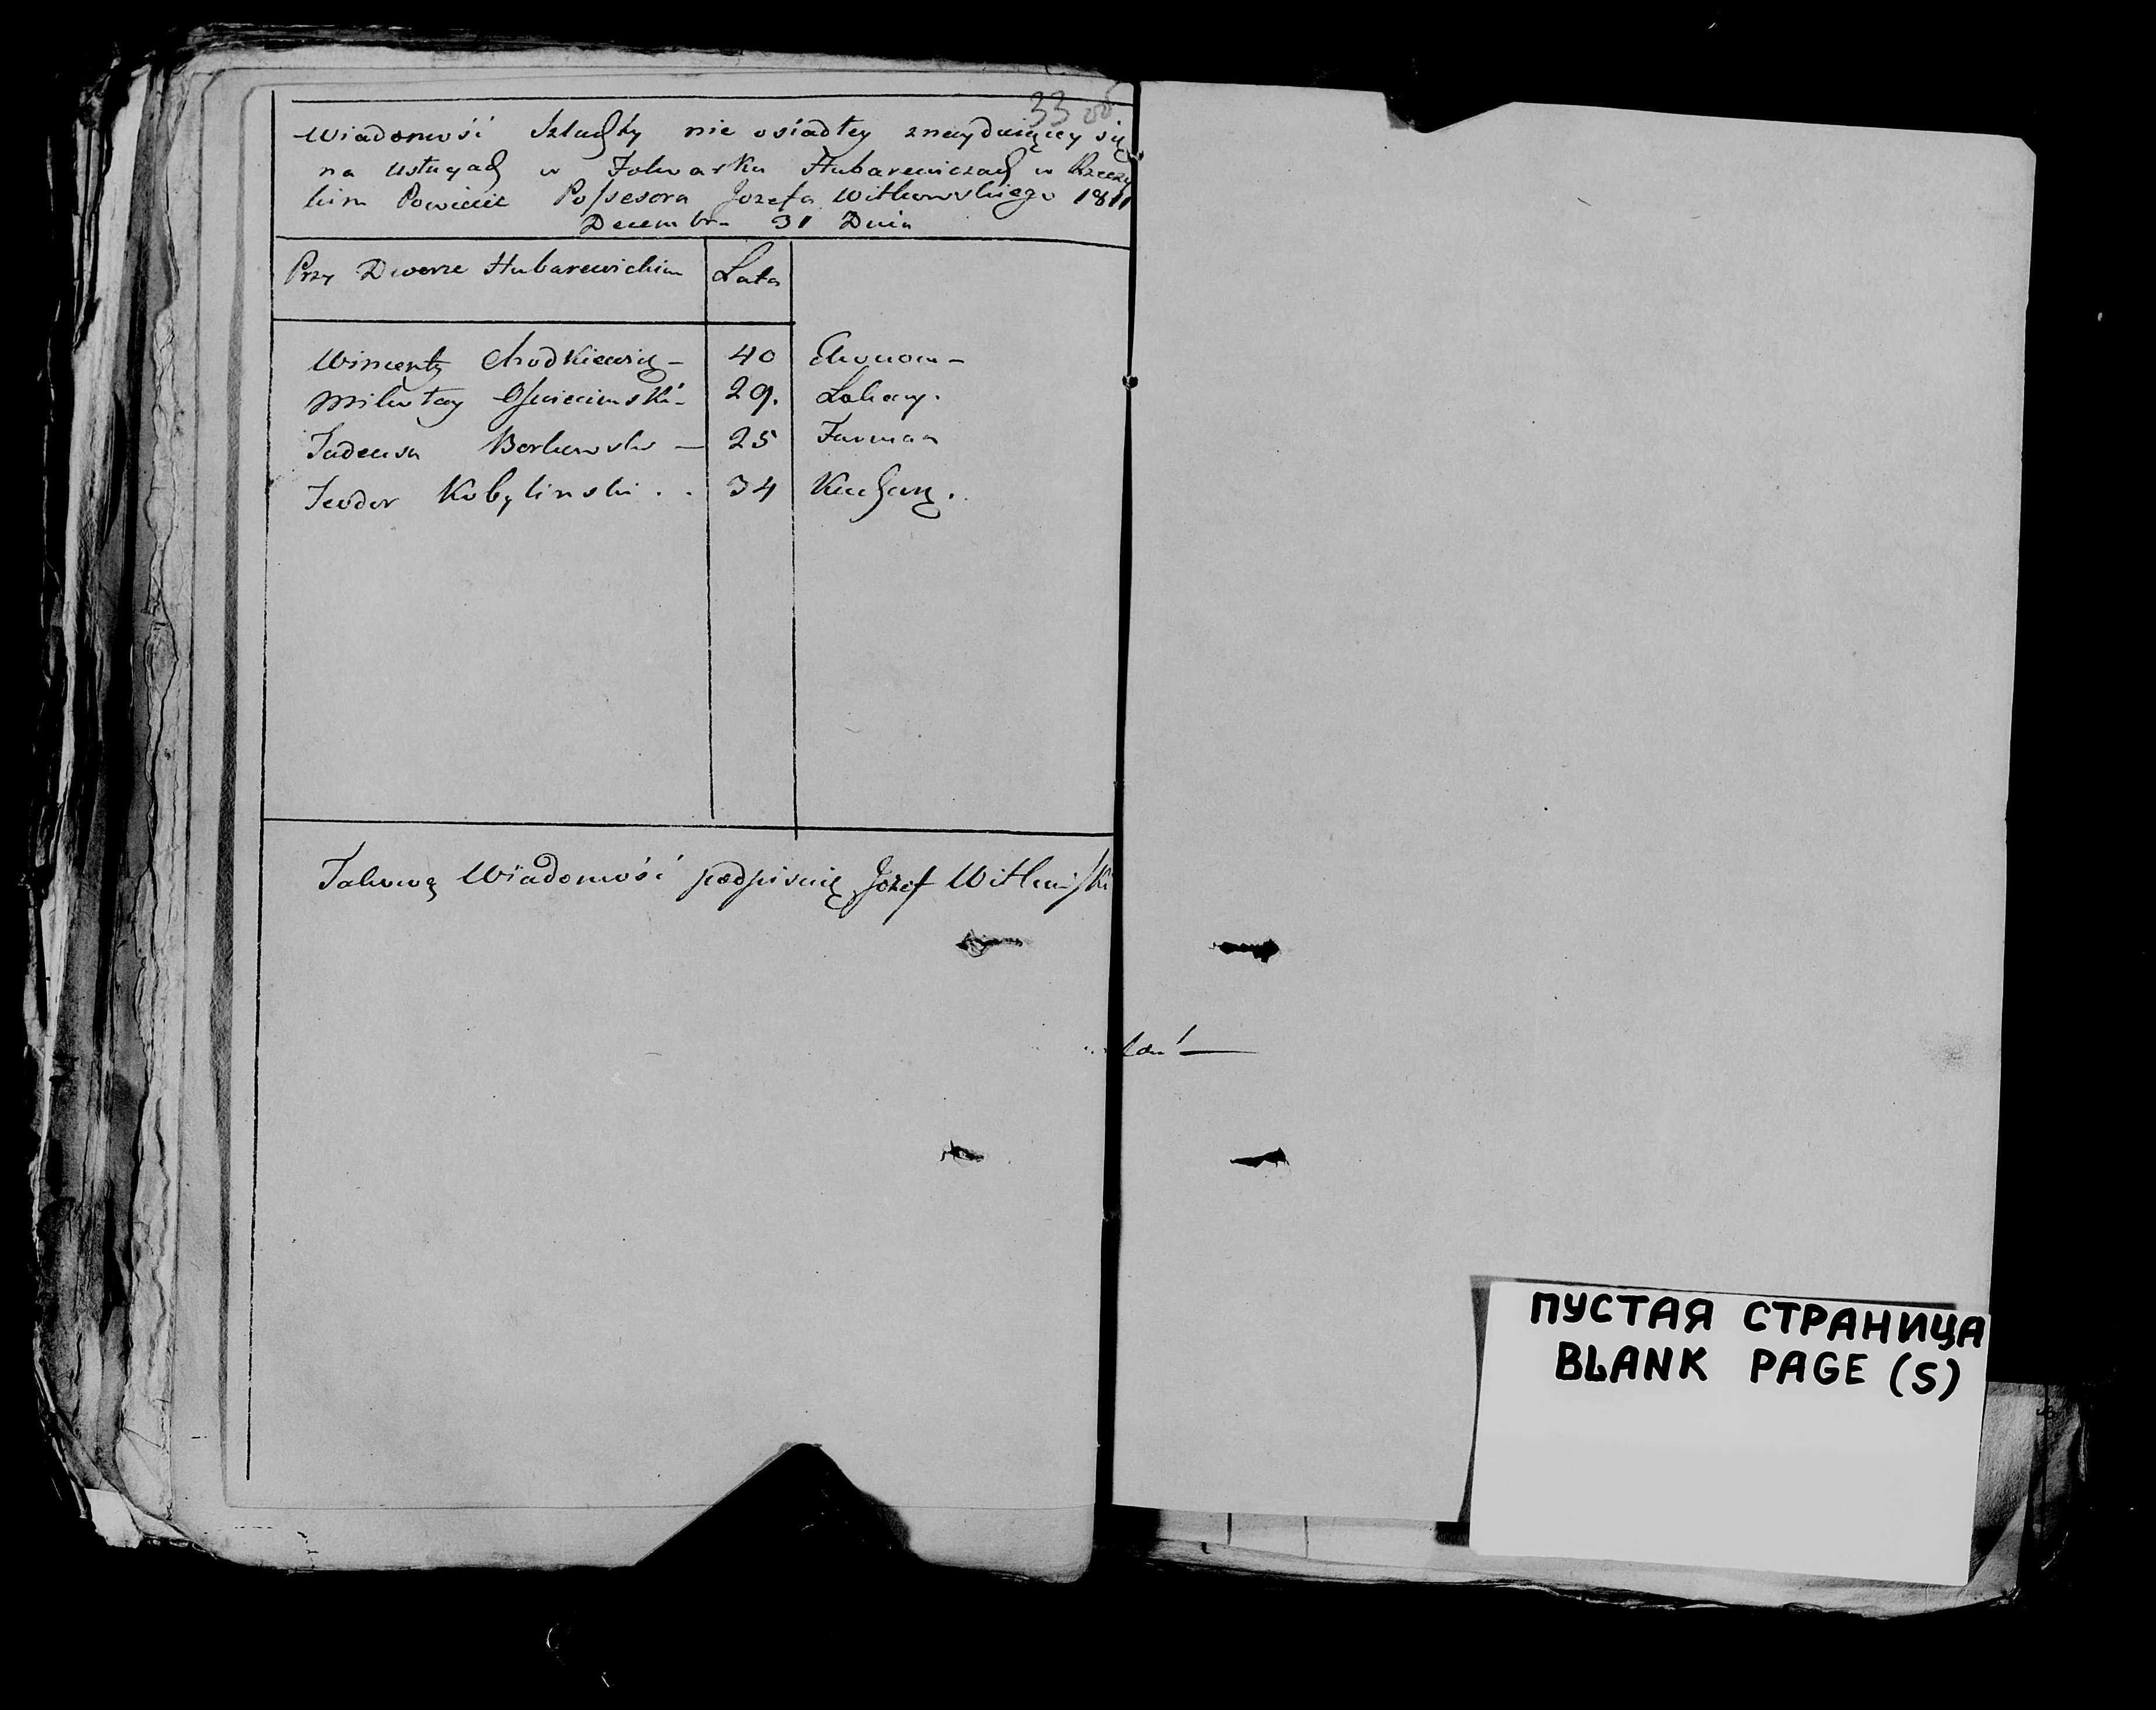 33 об
Wiadomość Szlachty nie osiadłey znayduiącey się
na usługach w Folwarku Hubarewiczach w Rzeczy
kim Powiecie Possesora Jozefa Witkowskiego 1811
Decembra 31 Dnia
Przy Dworze Hubarewickim Lata
Wincenty Chodkiewicz - 40 Ekonom -
Mikołay - 29. Lokay.
Tadeusz Borkowski - 25 Furman
Teodor Kobylinski . . 34 Kucharz.
Takową Wiadomość podpisuię Jozef Witkowski
ПУСТАЯ СТРАНИЦА
BLANK PAGE (S)